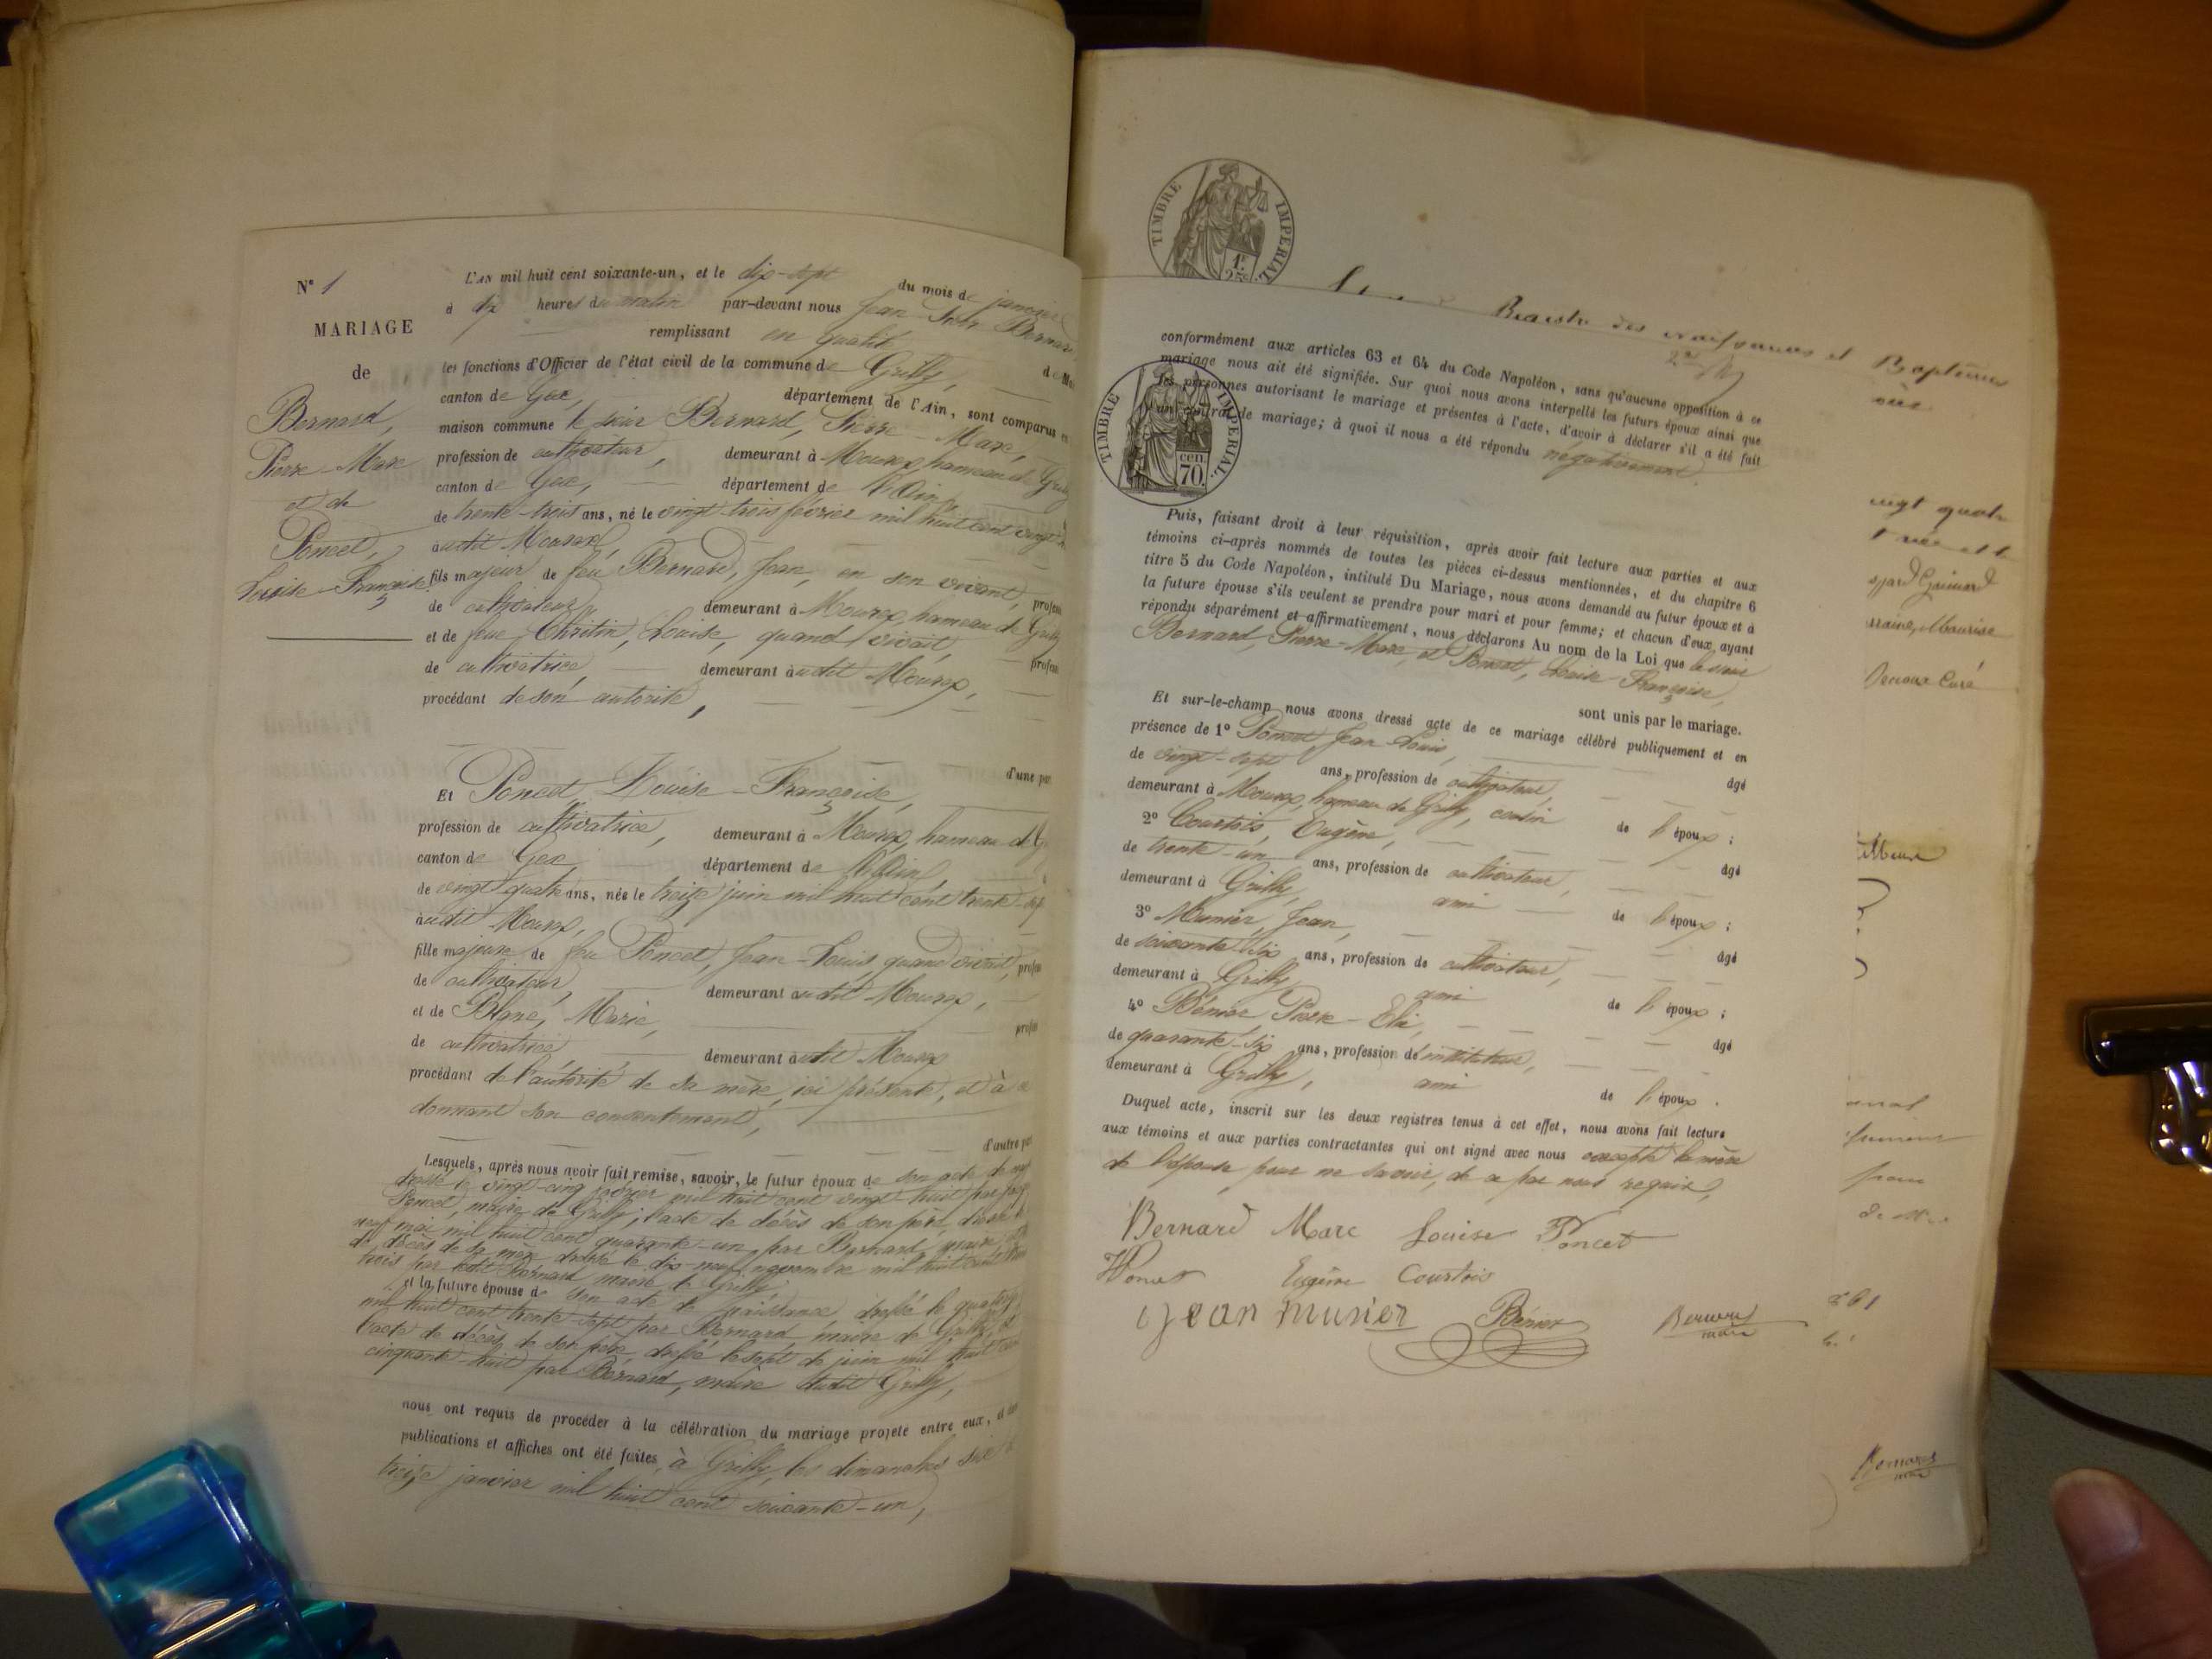 N° 1
MARIAGE
de
Bernard,
Pierre-Marc
et de
Poncet,
Louise-Françoise
L'AN mil huit cent soixante-un, et le dix-sept du mois de janvier
à dix heures du matin par-devant nous Jean Bernard
remplissant en qualité
les fonctions d'Officier de l'état civil de la commune de Grilly,
canton de Gex, département de l'Ain, sont comparus en
maison commune le sieur Bernard, Pierre-Marc,
profession de cultivateur, demeurant à Mourex, hameau de Grilly
canton de Gex, département de l'Ain,
de trente-trois ans, né le vingt-trois février mil huit cent vingt
audit Mourex,
fils majeur de feu Bernard, Jean, en son vivant, profession
de cultivateur, demeurant à Mourex, hameau de Grilly
et de feue Chrétin, Louise, quand vivait,
de cultivatrice, demeurant audit Mourex,
procédant de son autorité,
d'une part
Et Poncet Louise-Françoise,
profession de cultivatrice, demeurant à Mourex, hameau de G
canton de Gex, département de l'Ain,
de vingt-quatre ans, née le treize juin mil huit cent trente-sept
audit Mourex,
fille majeure de feu Poncet, Jean-Louis, quand vivait,
de cultivateur, demeurant audit Mourex,
et de Blanc, Marie,
de cultivatrice demeurant audit Mourex
procédant de l'autorité de sa mère, ici présente, et à ce
donnant son consentement,
d'autre part
Lesquels, après nous avoir fait remise, savoir, le futur époux de son acte de
dressé le vingt-cinq février mil huit cent vingt huit par
Poncet, maire de Grilly; l'acte de décès de son père, dressé le
neuf mai mil huit cent quarante-un par Bernard, maire
de décès de sa mère dressé le dix-neuf novembre mil huit cent
trois par Bernard maire de Grilly
et la future épouse de son acte de naissance, dressé le quatorze
mil huit cent trente sept par Bernard maire de Grilly, et
l'acte de décès de son père, dressé le sept de juin mil huit cent
cinquante-huit par Bernard, maire dudit Grilly,
nous ont requis de procéder à la célébration du mariage projeté entre eux,
publications et affiches ont été faites à Grilly, les dimanches six
treize janvier mil huit cent soixante-un,
TIMBRE IMPERIAL
1f.
25c
Registre des naissances et Baptêmes
conformément aux articles 63 et 64 du Code Napoléon, sans qu'aucune opposition à ce
mariage nous ait été signifiée. Sur quoi nous avons interpellé les futurs époux ainsi que
les personnes autorisant le mariage et présentes à l'acte, d'avoir à déclarer s'il a été fait
un contrat de mariage; à quoi il nous a été répondu négativement.
TIMBRE IMPERIAL.
cen.
70.
Puis, faisant droit à leur réquisition, après avoir fait lecture aux parties et aux
témoins ci-après nommés de toutes les pièces ci-dessus mentionnées, et du chapitre 6
titre 5 du Code Napoléon, intitulé Du Mariage, nous avons demandé au futur époux et à
la future épouse s'ils veulent se prendre pour mari et pour femme; et chacun d'eux ayant
répondu séparément et affirmativement, nous déclarons Au nom de la Loi que le sieur
Bernard, Pierre-Marc, et Poncet, Louise-Françoise,
sont unis par le mariage.
Et sur-le-champ nous avons dressé acte de ce mariage célébré publiquement et en
présence de 1° Poncet Jean-Louis, âgé
de vingt-sept ans, profession de cultivateur,
demeurant à Mourex, hameau de Grilly, cousin de l'époux;
2° Courtois, Eugène, âgé
de trente-un ans, profession de cultivateur,
demeurant à Grilly, ami de l'époux;
3° Munier, Jean, âgé
de soixante-six ans, profession de cultivateur,
demeurant à Grilly, ami de l'époux;
4° Bénier Pierre-Elie, âgé
de quarante-six ans, profession d'instituteur,
demeurant à Grilly, ami de l'époux.
Duquel acte, inscrit sur les deux registres tenus à cet effet, nous avons fait lecture
aux témoins et aux parties contractantes qui ont signé avec nous excepté la mère
de l'épouse, pour ne savoir, de ce par nous requise,
Bernard Marc Louise Poncet
Poncet Eugène Courtois
Jean munier Bénier Bernard
maire
vingt quatre
Maurise
Curé
Bernard
maire